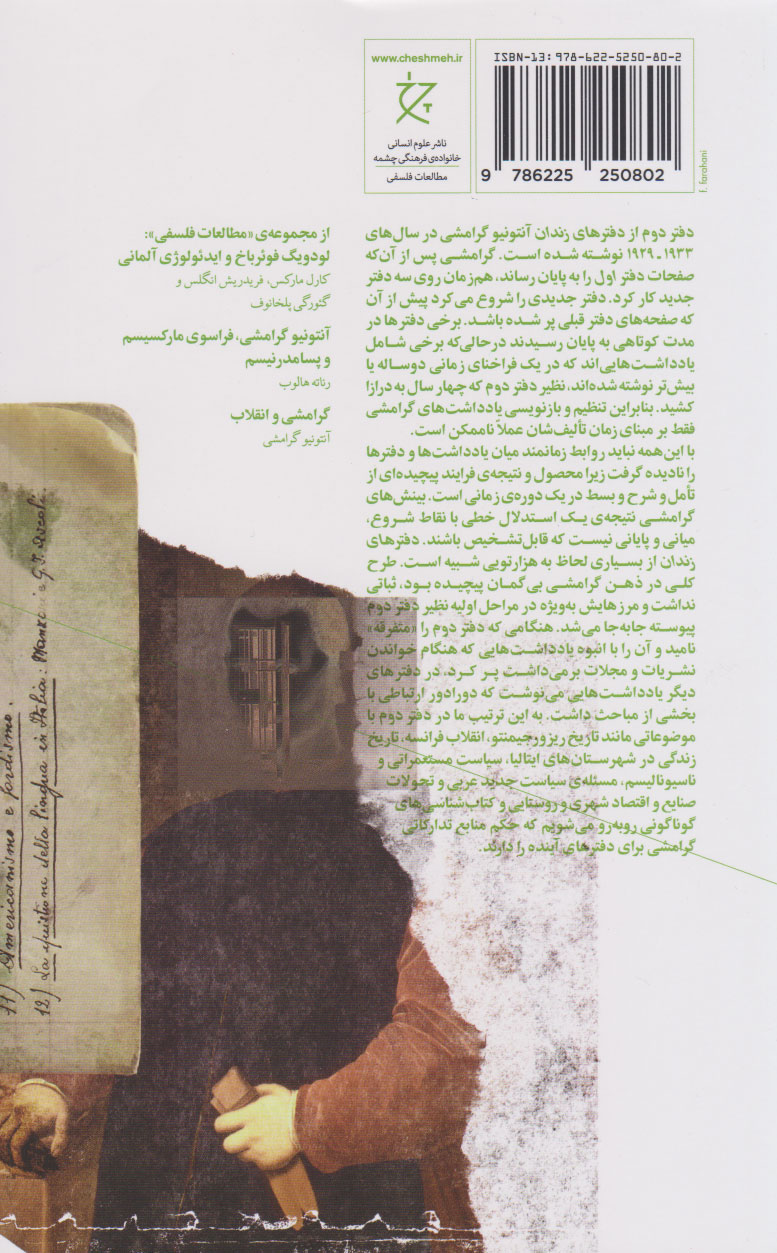 ISBN-13: 978-622-5250-80-2
9 786225 250802
f. farahani
www.cheshmeh.ir
ناشر علوم انسانی
خانواده‌ی فرهنگی چشمه
مطالعات فلسفی
دفتر دوم از دفترهای زندان آنتونیو گرامشی در سال‌های
۱۹۳۳ ـ ۱۹۲۹ نوشته شده است. گرامشی پس از آن‌که
صفحات دفتر اول را به پایان رساند، هم‌زمان روی سه دفتر
جدید کار کرد. دفتر جدیدی را شروع می‌کرد پیش از آن
که صفحه‌های دفتر قبلی پر شده باشد. برخی دفترها در
مدت کوتاهی به پایان رسیدند درحالی‌که برخی شامل
یادداشت‌هایی‌اند که در یک فراخنای زمانی دوساله یا
بیش‌تر نوشته شده‌اند، نظیر دفتر دوم که چهار سال به درازا
کشید. بنابراین تنظیم و بازنویسی یادداشت‌های گرامشی
فقط بر مبنای زمان تألیف‌شان عملاً ناممکن است.
با این‌همه نباید روابط زمانمند میان یادداشت‌ها و دفترها
را نادیده گرفت زیرا محصول و نتیجه‌ی فرایند پیچیده‌ای از
تأمل و شرح و بسط در یک دوره‌ی زمانی است. بینش‌های
گرامشی نتیجه‌ی یک استدلال خطی با نقاط شروع،
میانی و پایانی نیست که قابل‌تشخیص باشند. دفترهای
زندان از بسیاری لحاظ به هزارتویی شبیه است. طرح
کلی در ذهن گرامشی بی‌گمان پیچیده بود، ثباتی
نداشت و مرزهایش به‌ویژه در مراحل اولیه نظیر دفتر دوم
پیوسته جابه‌جا می‌شد. هنگامی که دفتر دوم را «متفرقه»
نامید و آن را با انبوه یادداشت‌هایی که هنگام خواندن
نشریات و مجلات برمی‌داشت پر کرد، در دفترهای
دیگر یادداشت‌هایی می‌نوشت که دورادور ارتباطی با
بخشی از مباحث داشت. به این ترتیب ما در دفتر دوم با
موضوعاتی مانند تاریخ ریزورجیمنتو، انقلاب فرانسه، تاریخ
زندگی در شهرستان‌های ایتالیا، سیاست مستعمراتی و
ناسیونالیسم، مسئله‌ی سیاست جدید عربی و تحولات
صنایع و اقتصاد شهری و روستایی و کتاب‌شناسی‌های
گوناگونی روبه‌رو می‌شویم که حکم منابع تدارکاتی
گرامشی برای دفترهای آینده را دارند.
از مجموعه‌ی «مطالعات فلسفی»:
لودویگ فوئرباخ و ایدئولوژی آلمانی
کارل مارکس، فریدریش انگلس و
گئورگی پلخانوف
آنتونیو گرامشی، فراسوی مارکسیسم
و پسامدرنیسم
رناته هالوب
گرامشی و انقلاب
آنتونیو گرامشی
11) Americanismo e fordismo.
12) La quistione della lingua in Italia: Manzoni e G. I. Ascoli.